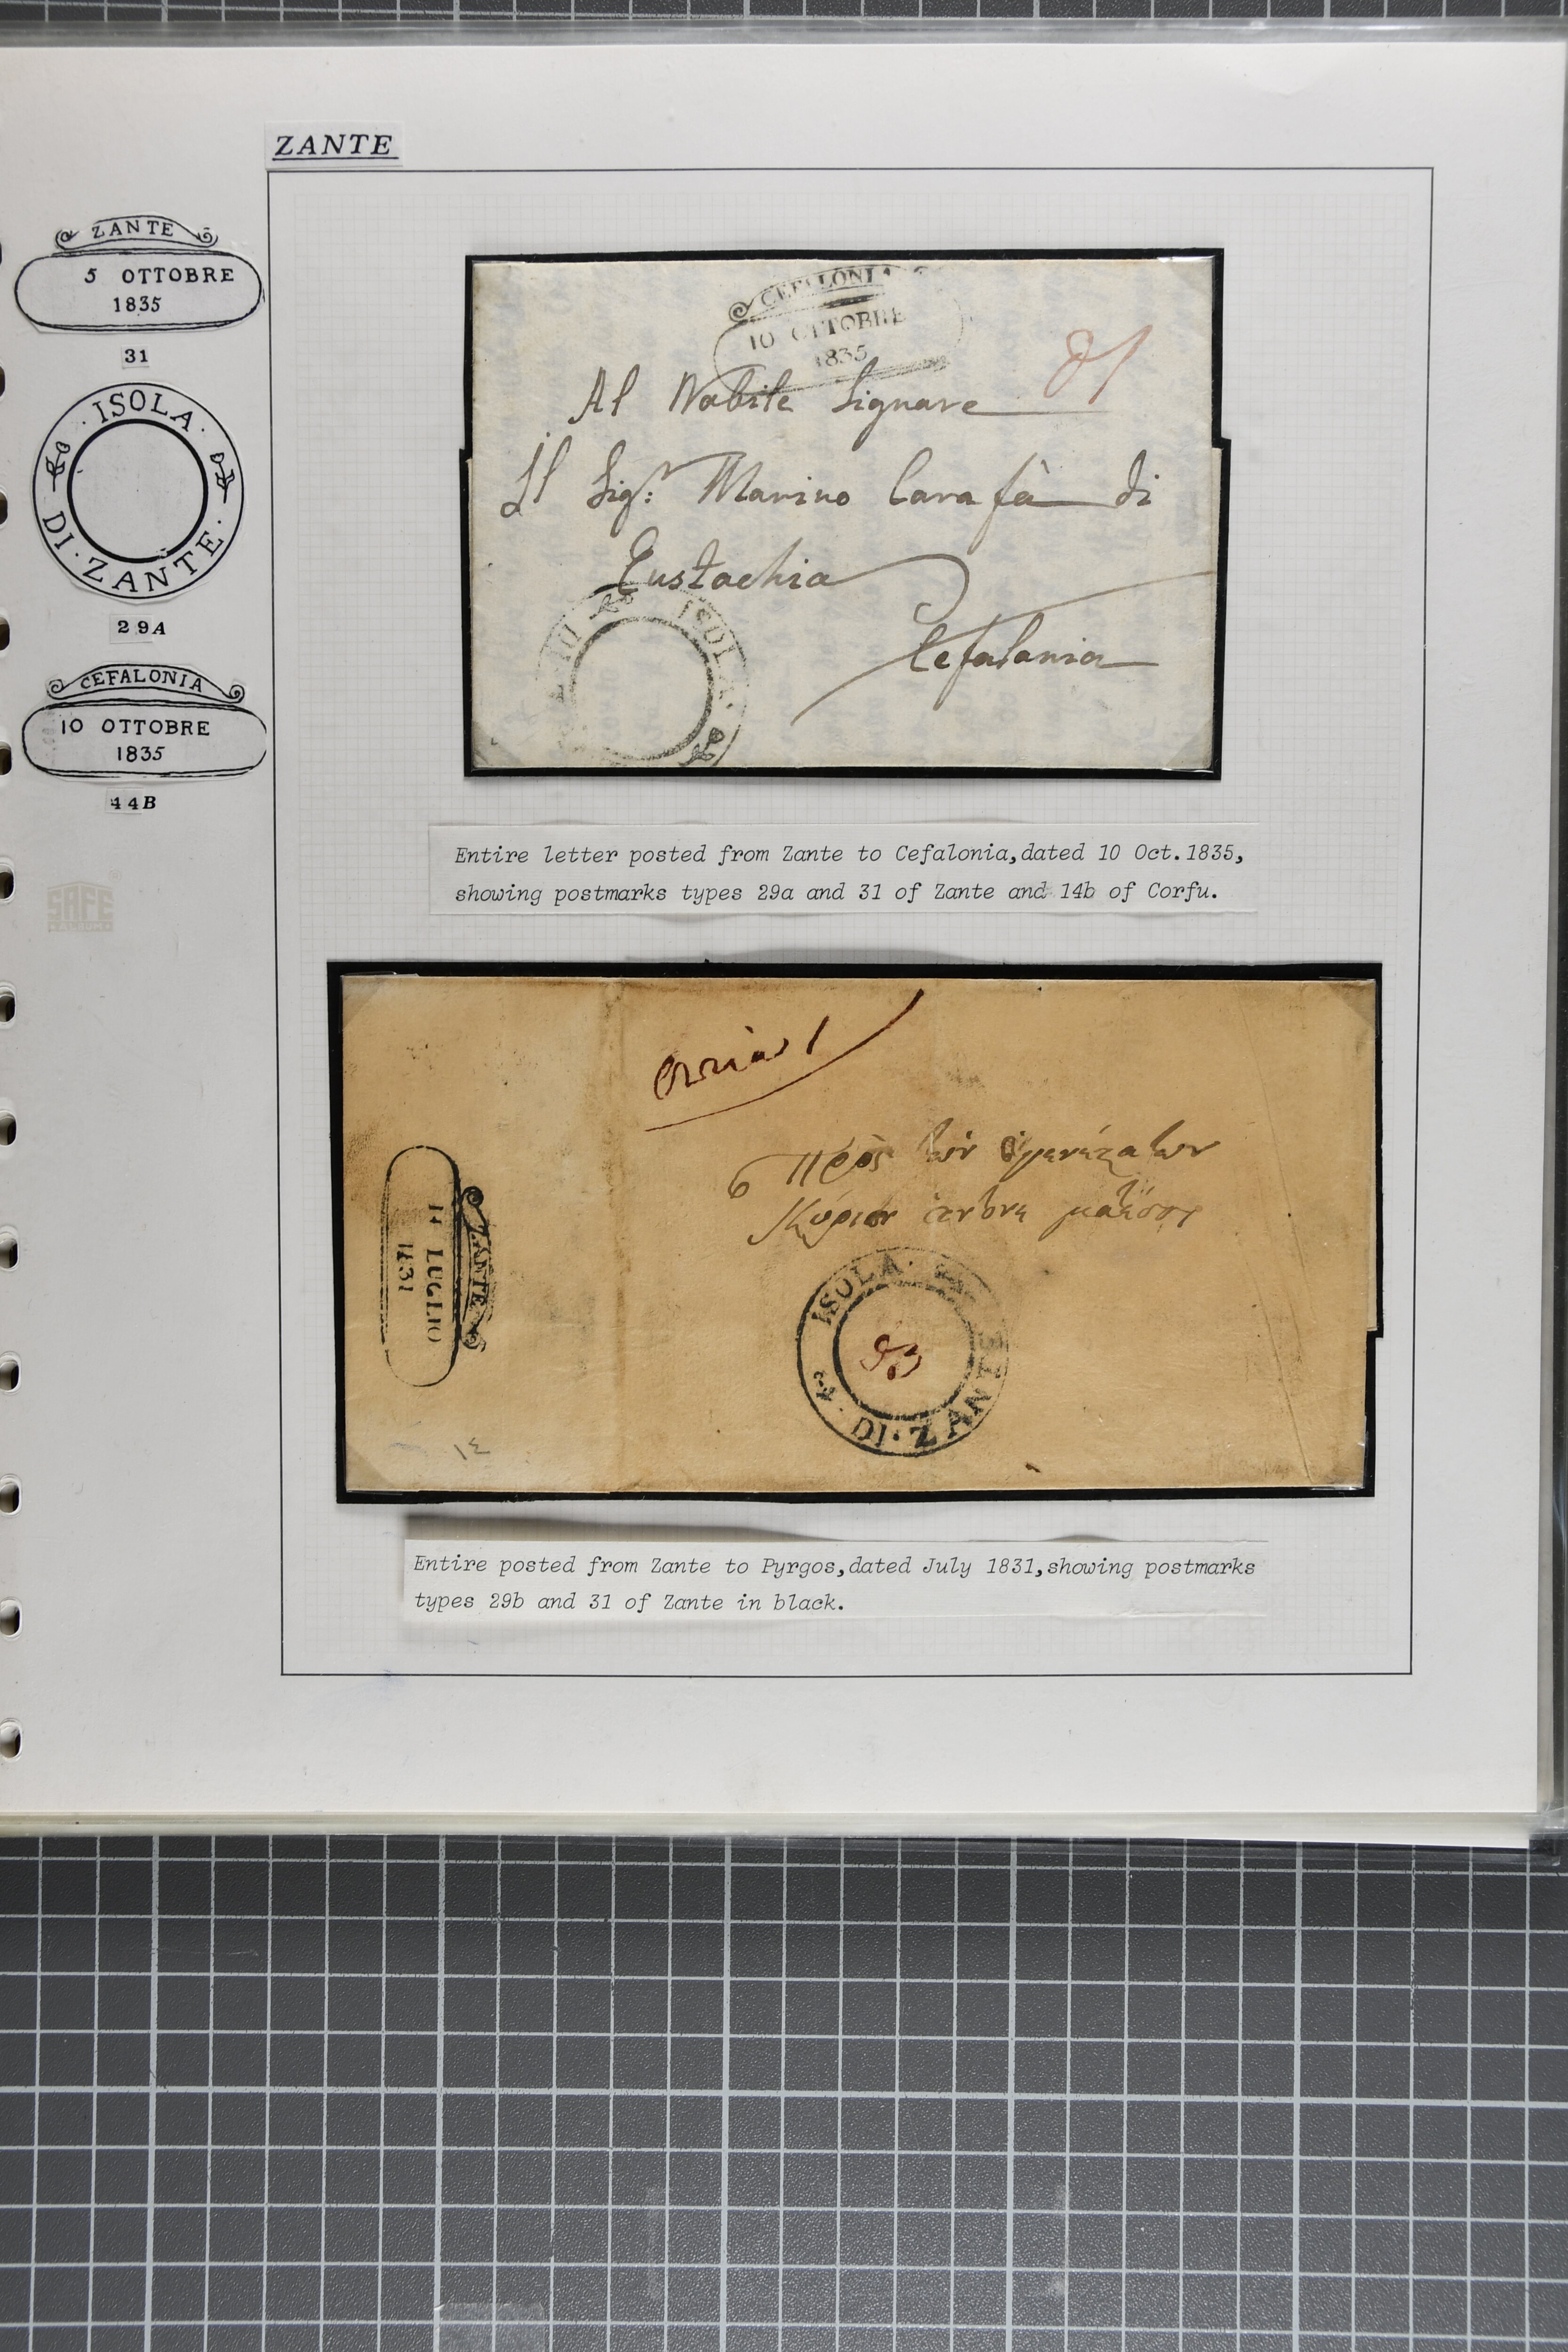 ZANTE
ZANTE
5 OTTOBRE
1835
31
· ISOLA ·
DI · ZANTE ·
29A
CEFALONIA
10 OTTOBRE
1835
44B
SAFE
ALBUM
CEFALONIA
10 OTTOBRE
1835
Al Nobile Signore
Il Sigr: Marino Carafà di
Eustachio
Cefalonia
ISOLA ·
DI
Entire letter posted from Zante to Cefalonia, dated 10 Oct. 1835,
showing postmarks types 29a and 31 of Zante and 14b of Corfu.
Πρὸς τὸν
Κύριον
ZANTE
14 LUGLIO
1831
ISOLA ·
· DI · ZANTE
Entire posted from Zante to Pyrgos, dated July 1831, showing postmarks
types 29b and 31 of Zante in black.